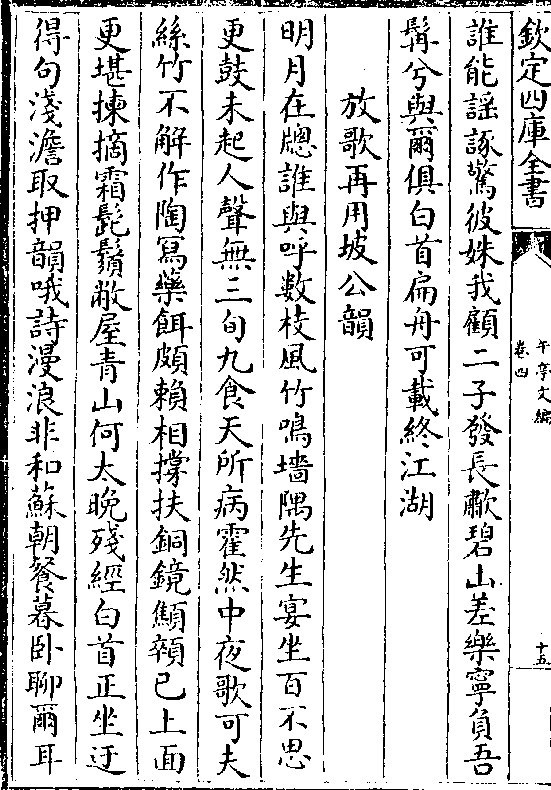 欽定四庫全書
午亭文編
卷四
十五
誰能謡諑驚彼姝我顧二子發長歗碧山差樂寧負吾
髯兮與爾俱白首扁舟可載終江湖
放歌再用坡公韻
明月在牎誰與呼數枝風竹鳴墻隅先生宴坐百不思
更鼓未起人聲無三旬九食天所病霍然中夜歌可夫
絲竹不解作陶冩藥餌頗賴相撐扶銅鏡顩顇已上面
更堪揀摘霜髭鬚敝屋青山何太晚殘經白首正坐迂
得句淺澹取押韻哦詩漫浪非和蘇朝餐暮卧聊爾耳